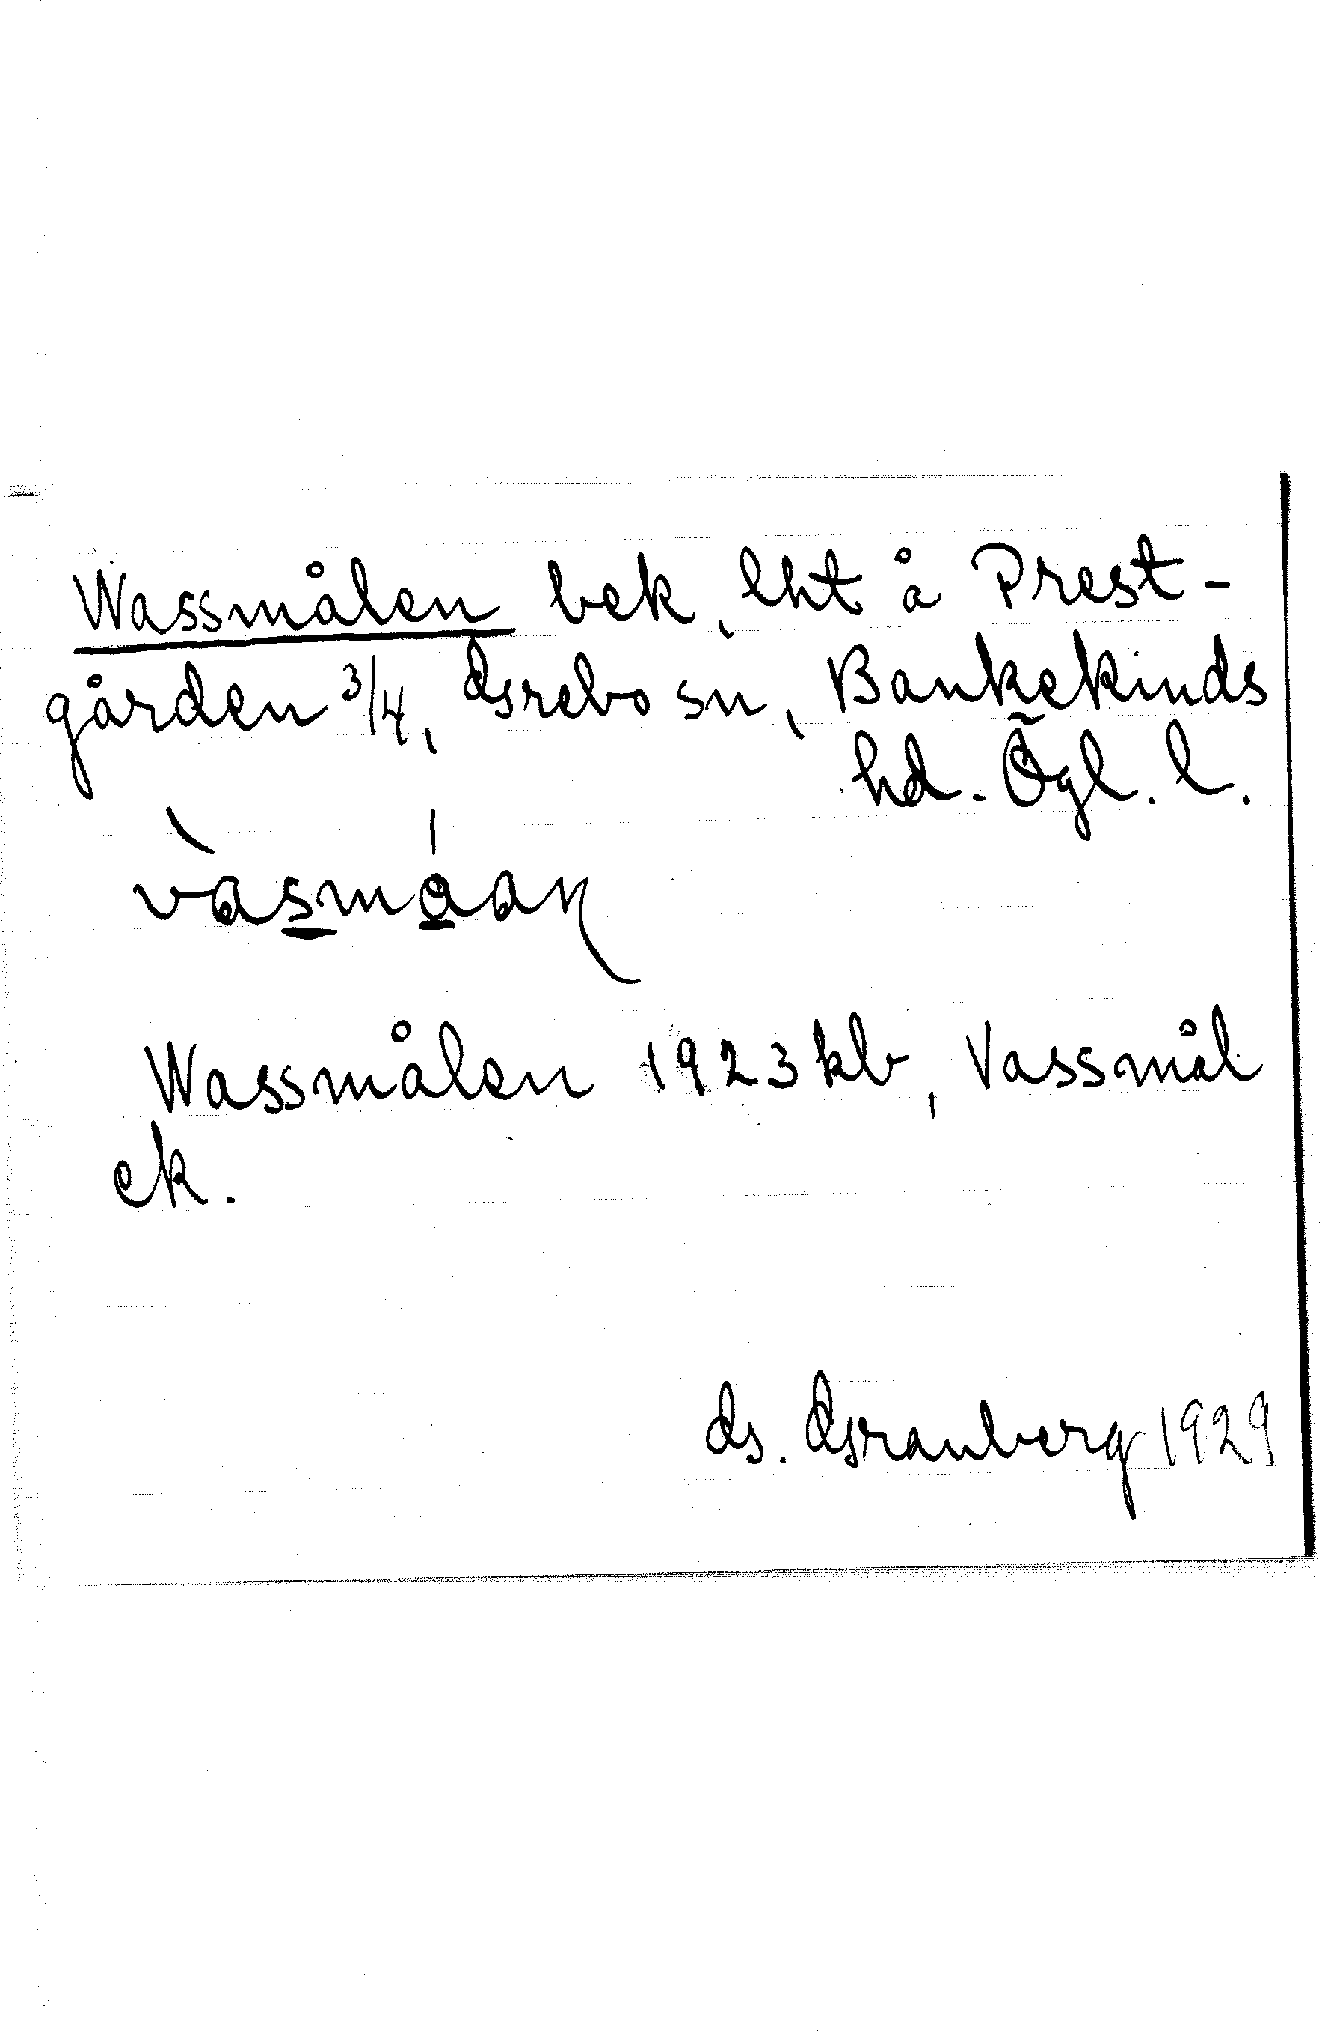 Wassmålen bek, lht å Prest-
gården 3/4, Grebo sn, Bankekinds
hd. Ögl. l.
Wassmålen 1923 kb, Vassmål
ek.
G. Granberg 1929